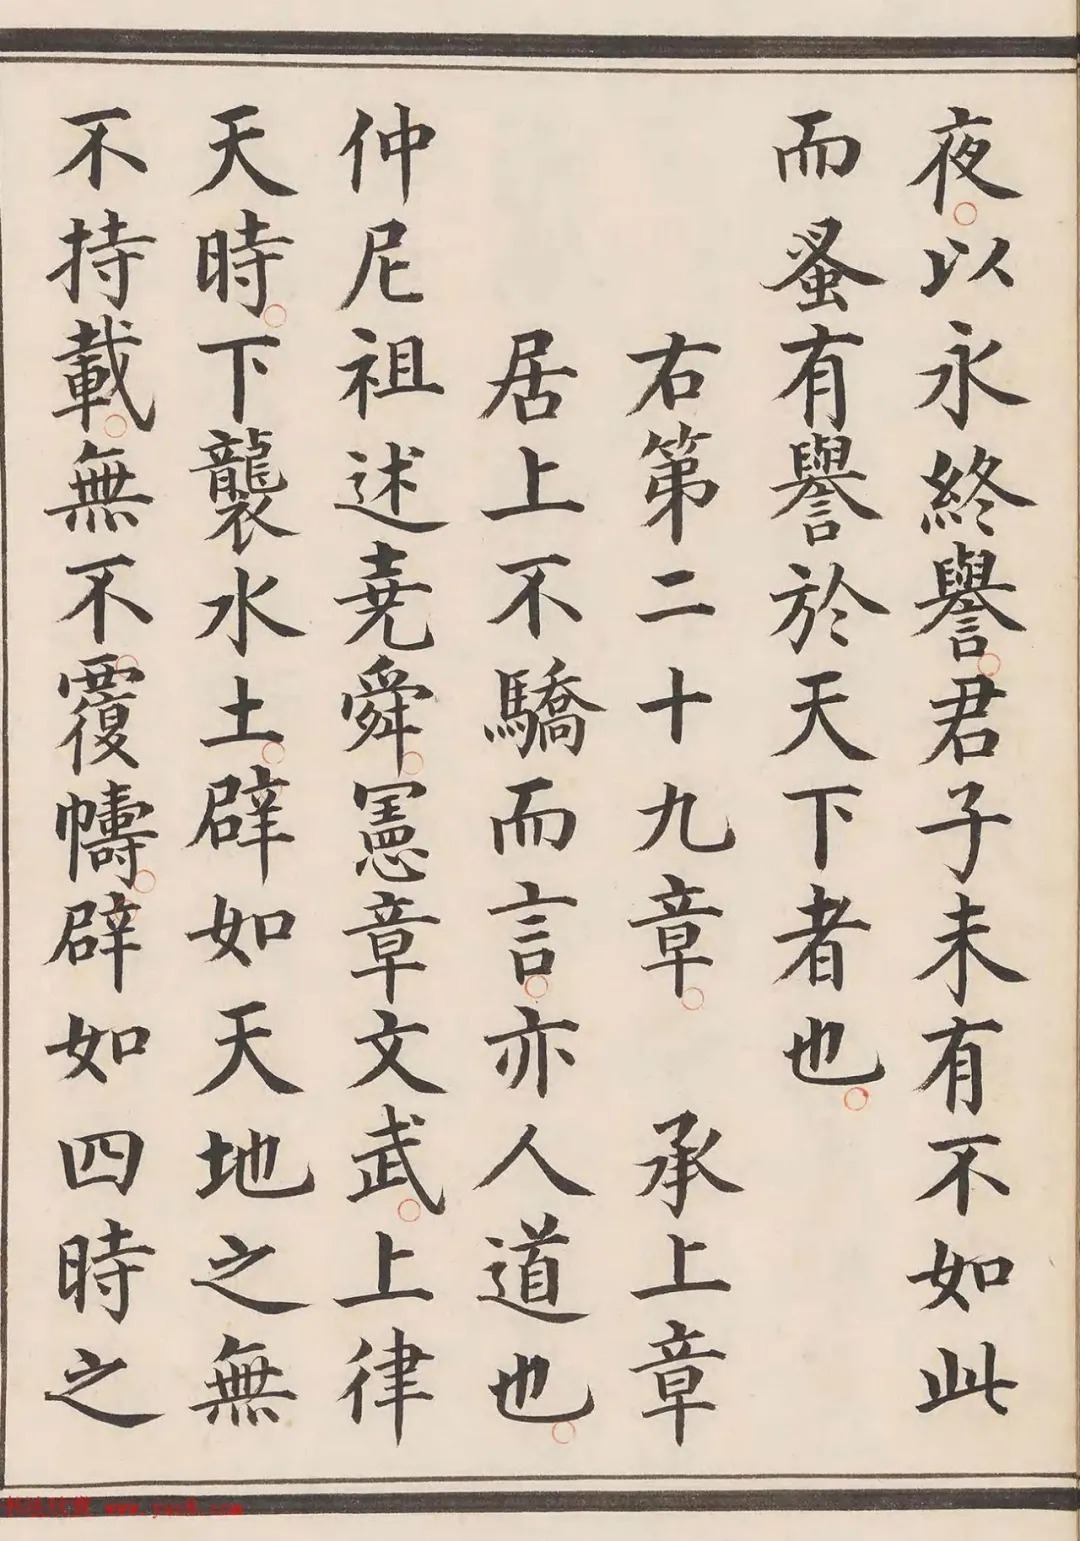 夜以永終譽君子未有不如此
而蚤有譽於天下者也
右第二十九章 承上章
居上不驕而言亦人道也
仲尼祖述堯舜憲章文武上律
天時下襲水土辟如天地之無
不持載無不覆幬辟如四時之